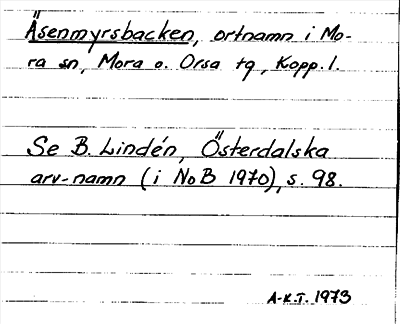 Åsenmyrsbacken, ortnamn i Mo-
ra sn, Mora o. Orsa tg, Kopp. l.
Se B. Lindén, Österdalska
arv-namn (i NoB 1970), s. 98.
A-K.T. 1973